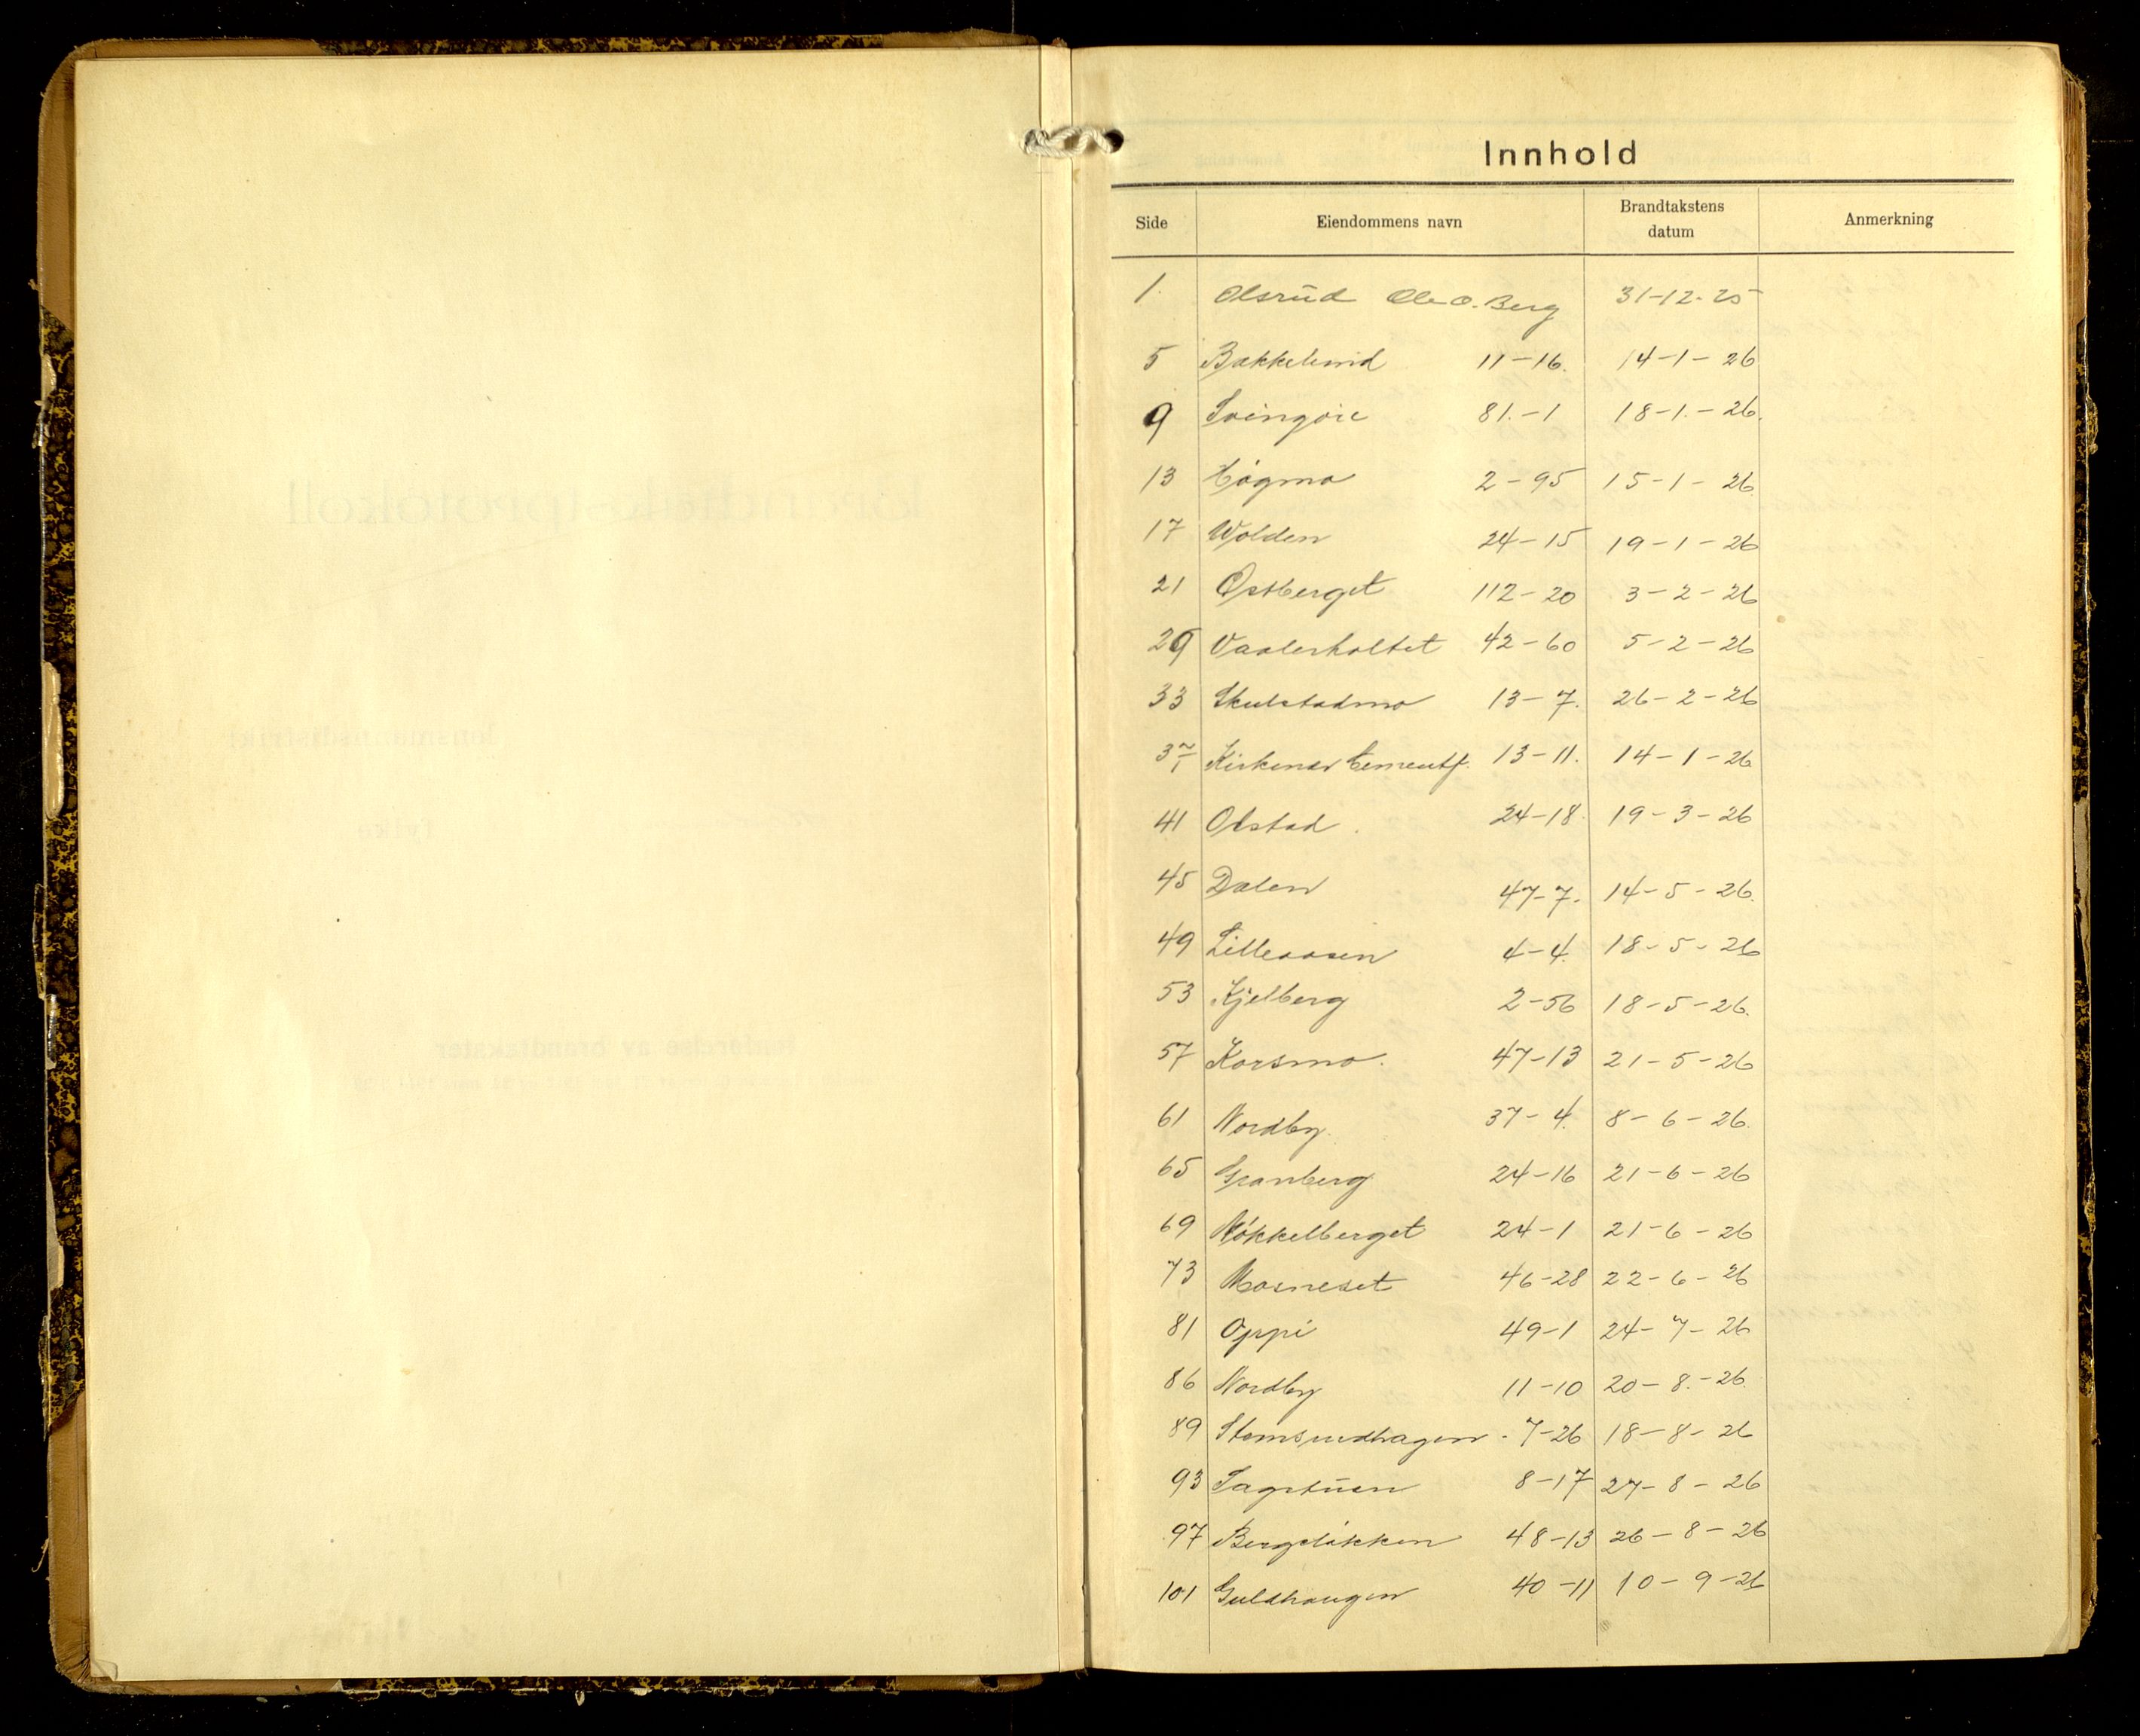 Innhold
Side Eiendommens navn Brandtakstens datum Anmerkning
1. Olsrud Ole O. Berg 31-12-25
5 Bakkelund 11-16. 14-1-26
9 Svingøie 81.-1 18-1.-26.
13 Høgmo 2-95 15-1-26
17 Wolden 24-15 19-1-26
21 Østberget 112-20 3-2-26
29 Vaalerholtet 42-60 5-2-26
33 Skulstadmo 13-7. 26-2-26
37 Kirkenær Cementf. 13-11. 14-1-26
41 Olstad 24-18. 19-3-26
45 Dalen 47-7. 14-5-26.
49 Lilleaasen 4-4. 18-5-26
53 Kjelberg 2-56 18-5-26.
57 Korsmo. 47-13 21-5-26
61 Nordby. 37-4. 8-6-26.
65 Granberg 24-16 21-6-26
69 Nøkkelberget 24-1 21-6-26
73 Mosneset 46-28 22-6-26
81 Oppi 49-1 24-7-26
86 Nordby 11-10 20-8.-26.
89 Stemsrudhagen - 7-26 18-8-26
93 Sagstuen 8-17 27-8-26
97 Bergeløkken 48-13 26-8-26
101 Guldhaugen 40-11 10-9-26